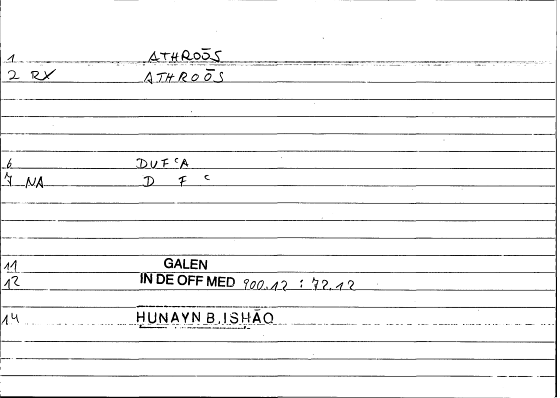 1 ATHROŌS
2 RX ATHROŌS
6 DUFʿA
7 NA D F ʿ
11 GALEN
12 IN DE OFF MED 900.12 : 72.12
14 HUNAYN B. ISHĀQ